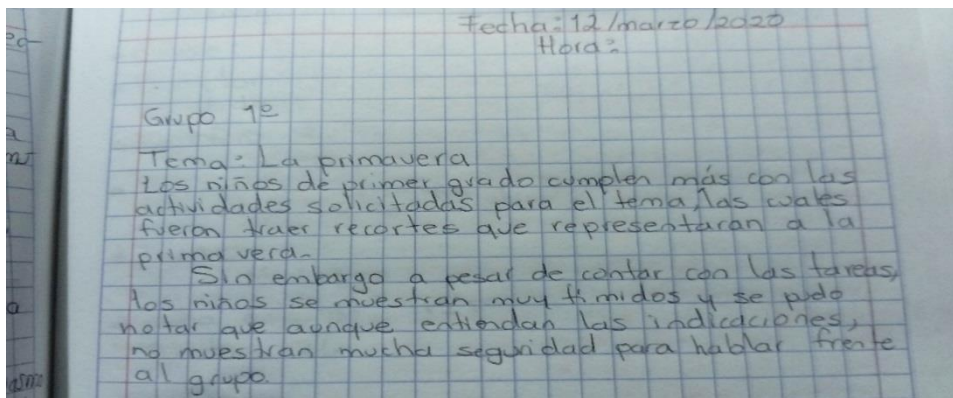 Fecha: 12/marzo/2020
Hora:
Grupo 1º
Tema: La primavera
Los niños de primer grado cumplen más con las
actividades solicitadas para el tema, las cuales
fueron traer recortes que representaran a la
primavera.
Sin embargo a pesar de contar con las tareas,
los niños se muestran muy timidos y se pudo
notar que aunque entiendan las indicaciones,
no muestran mucha seguridad para hablar frente
al grupo.